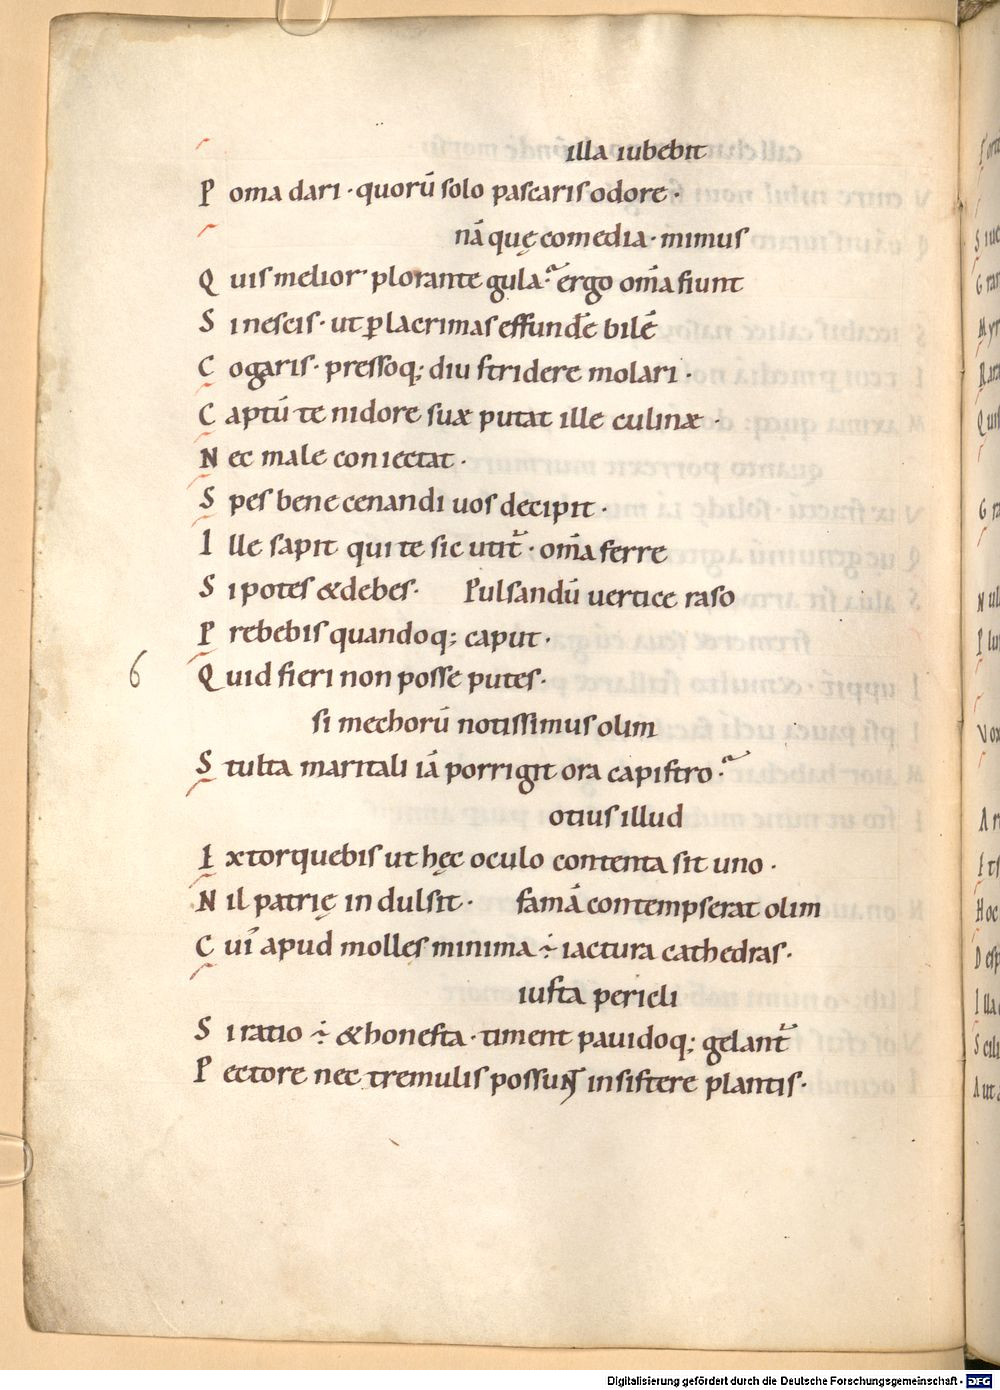 illa iubebit
P oma dari · quorū solo pascaris odore ·
nā quę comedia · mimus
Q uis melior plorante gula · ergo om̄a fiunt
S i nescis · ut ꝑ lacrimas effundēe bilē
C ogaris · pressoq; diu stridere molari ·
C aptū te nidore suæ putat ille culinæ ·
N ec male coniectat ·
S pes bene cenandi uos decipit ·
I lle sapit qui te sic utit᷑ · om̄a ferre
S i potes & debes · Pulsandū uertice raso
P rebebis quandoq; caput ·
6 Q uid fieri non posse putes ·
si mechorū notissimus olim
S tulta maritali iā porrigit ora capistro ·
otius illud
E xtorquebis ut hęc oculo contenta sit uno ·
N il patrię indulsit · famā contempserat olim
C uī apud molles minima ÷ iactura cathedras ·
iusta pericli
S i ratio ÷ & honesta · timent pauidoq; gelant᷑
P ectore nec tremulis possunt insistere plantis ·
Digitalisierung gefördert durch die Deutsche Forschungsgemeinschaft - DFG